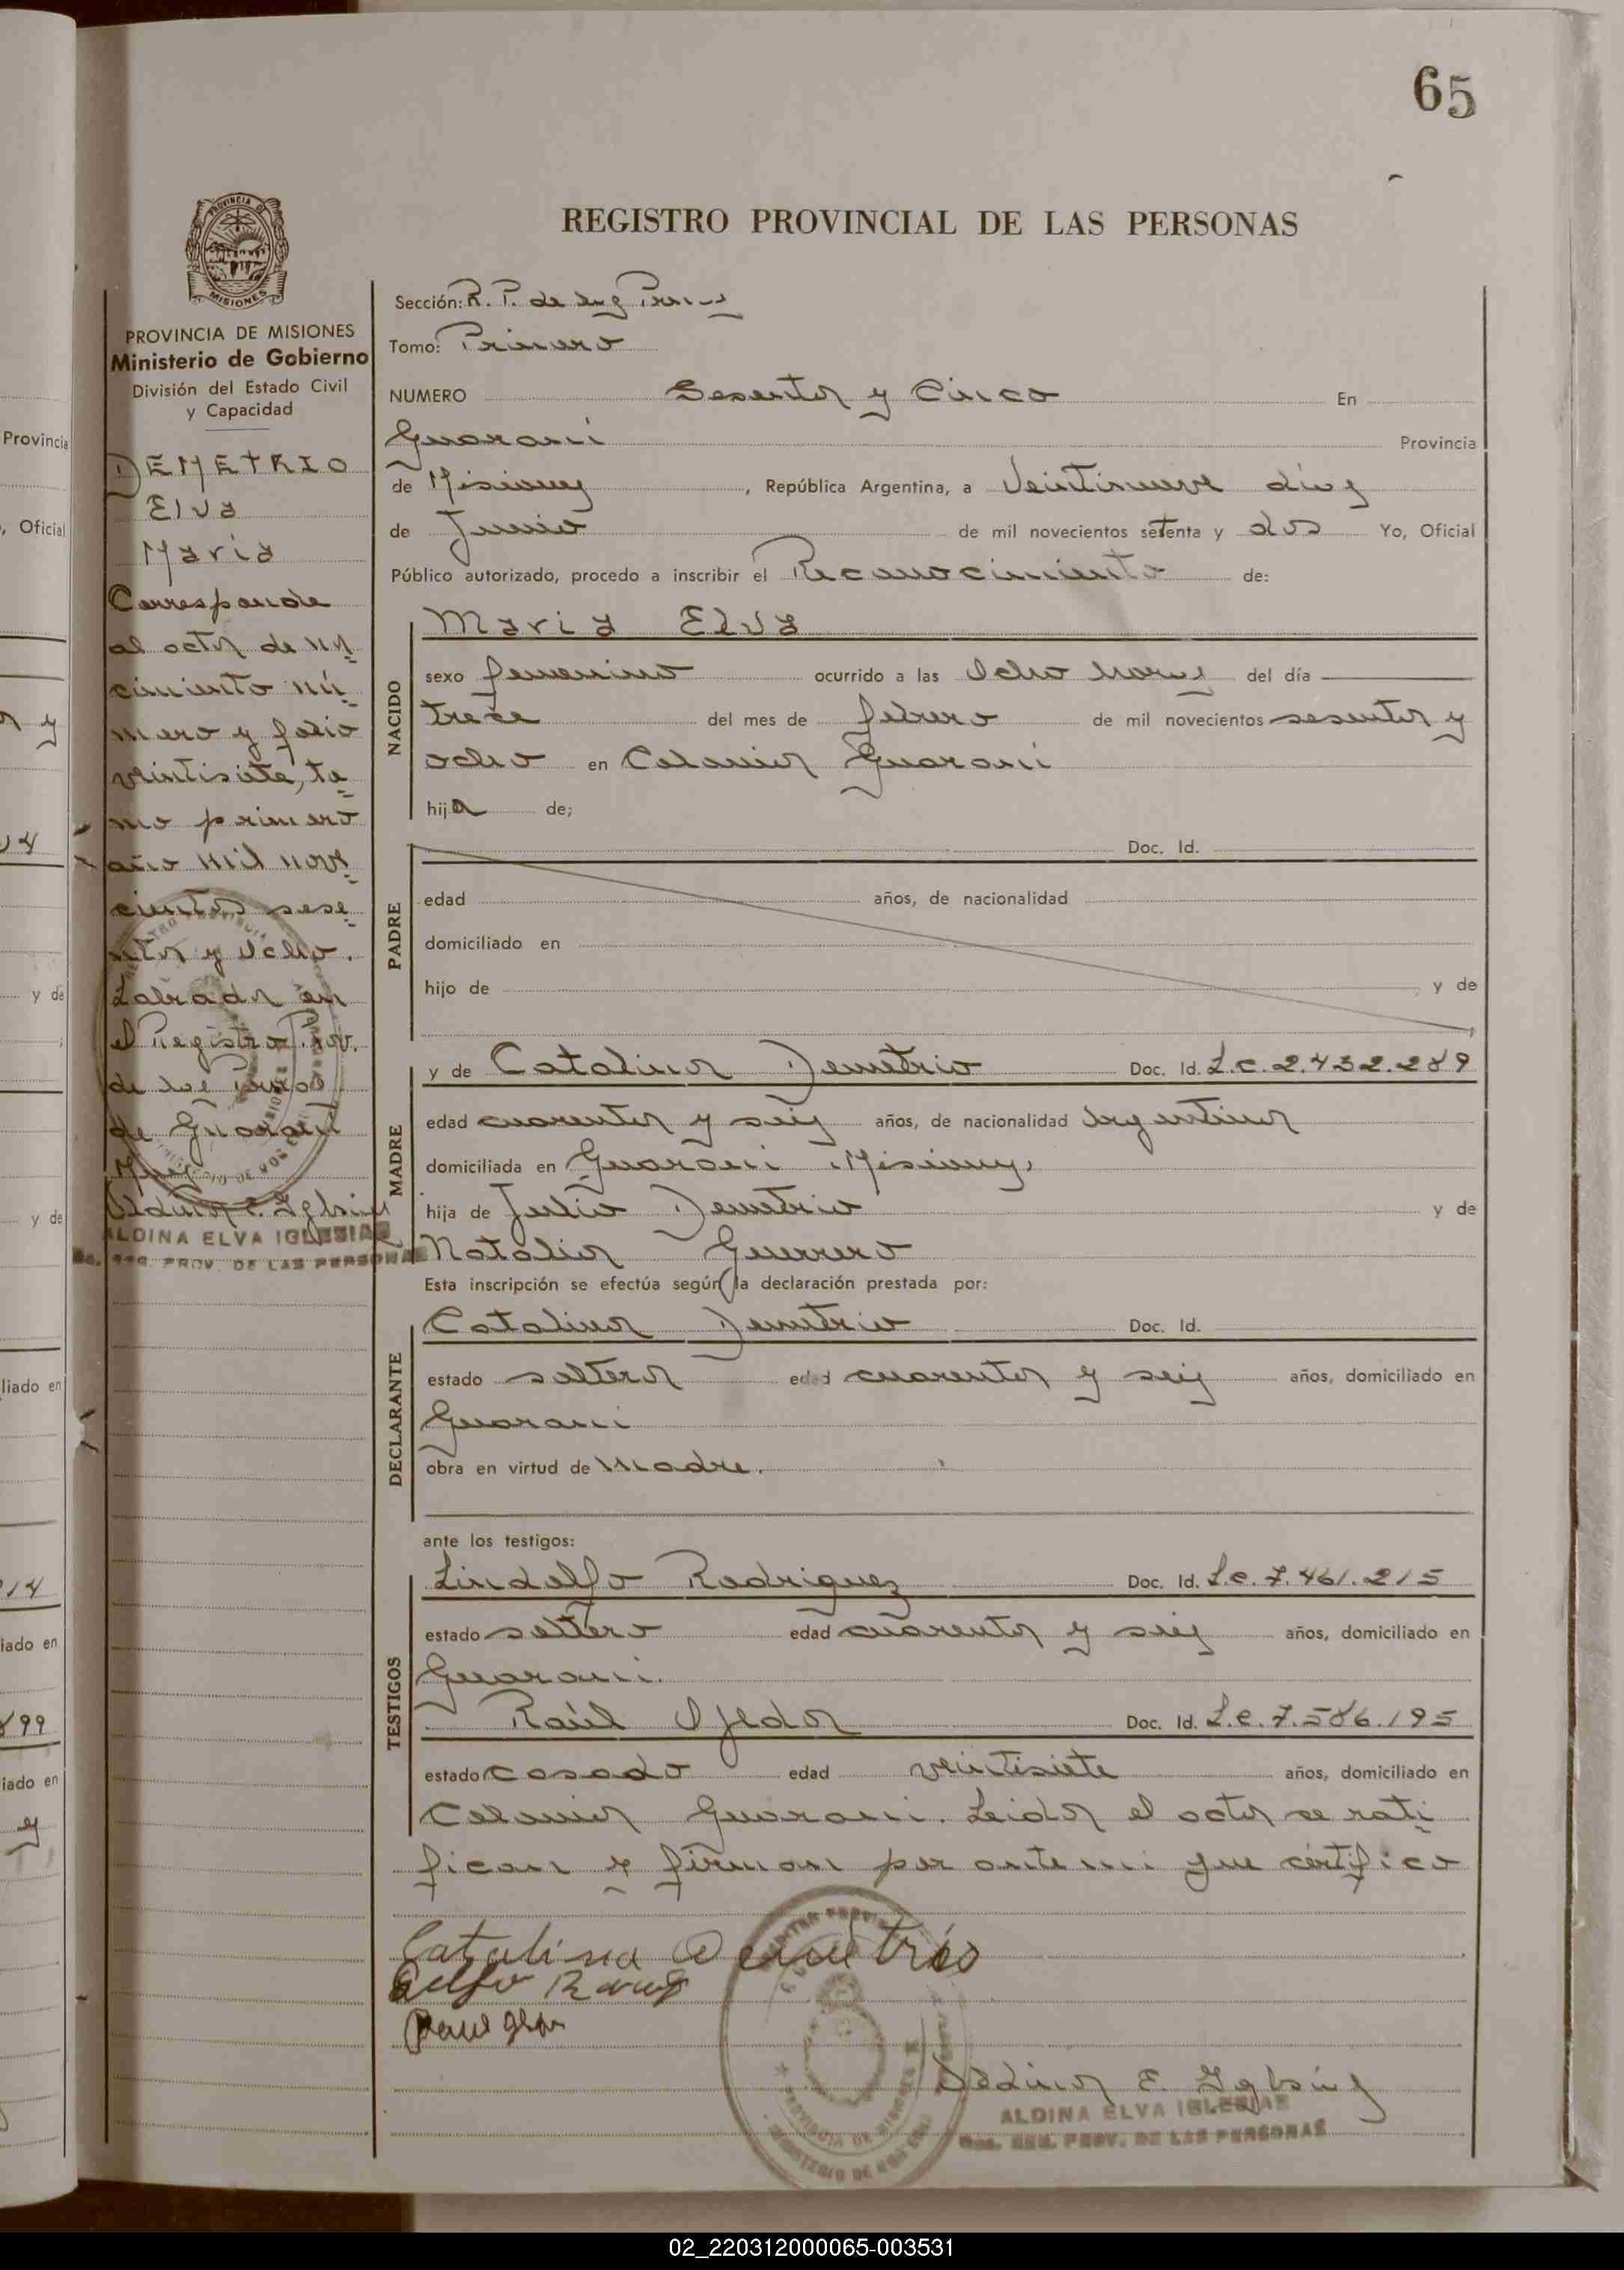 65
REGISTRO PROVINCIAL DE LAS PERSONAS
PROVINCIA DE MISIONES
Ministerio de Gobierno
División del Estado Civil
y Capacidad
DEMETRIO
Elva
María
Corresponde
al acta de na
cimiento nú
mero y folio
veintisiete, to
mo primero
año mil nove
cientos sese
nta y ocho.
Labrada en
el Registro Prov.
de las
de Guaraní
Aldina E. Iglesias
ALDINA ELVA IGLESIAS
REG. PROV. DE LAS PERSONAS
Sección: R. P. de las Pers
Tomo: Primero
NUMERO Sesenta y Cinco En
Guaraní Provincia
de Misiones, República Argentina, a Veintinueve días
de Junio de mil novecientos setenta y dos Yo, Oficial
Público autorizado, procedo a inscribir el Reconocimiento de:
NACIDO
María Elva
sexo femenino ocurrido a las Ocho horas del día
trece del mes de febrero de mil novecientos sesenta y
ocho en Colonia Guaraní
hija de;
PADRE
Doc. Id.
edad años, de nacionalidad
domiciliado en
hijo de y de
MADRE
y de Catalina Demetrio Doc. Id. L.C. 2.432.289
edad cuarenta y seis años, de nacionalidad Argentina
domiciliada en Guaraní Misiones,
hija de Julio Demetrio y de
Natalia Guerrero
Esta inscripción se efectúa según la declaración prestada por:
DECLARANTE
Catalina Demetrio Doc. Id.
estado soltera edad cuarenta y seis años, domiciliado en
Guaraní
obra en virtud de Madre.
ante los testigos:
TESTIGOS
Lindolfo Rodriguez Doc. Id. L.E. 7.461.215
estado soltero edad cuarenta y seis años, domiciliado en
Guaraní.
Raúl Ojeda Doc. Id. L.E. 7.586.195
estado casado edad veintisiete años, domiciliado en
Colonia Guaraní. Leida el acta se rati
fican y firman por ante mi que certifico
Catalina Demetrio
Raul
Aldina E. Iglesias
ALDINA ELVA IGLESIAS
REG. PROV. DE LAS PERSONAS
Provincia
, Oficial
y
y de
y de
liado en
214
iado en
899
iado en
y
02_220312000065-003531